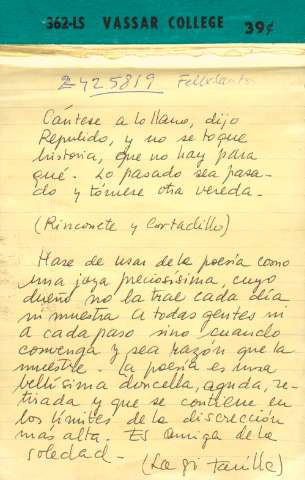 362-LS VASSAR COLLEGE 39¢
2425819
Cántese a lo llano, dijo
Repulido, y no se toque
historia, que no hay para
qué. Lo pasado sea pasa-
do y tómese otra vereda.
(Rinconete y Cortadillo)
Hase de usar de la poesía como
una joya preciosísima, cuyo
dueño no la trae cada día
ni muestra a todas gentes ni
a cada paso sino cuando
convenga y sea razón que la
muestre. La poesía es una
bellísima doncella, aguda, re-
tirada y que se contiene en
los límites de la discreción
mas alta. Es amiga de la
soledad -
(La gitanilla)